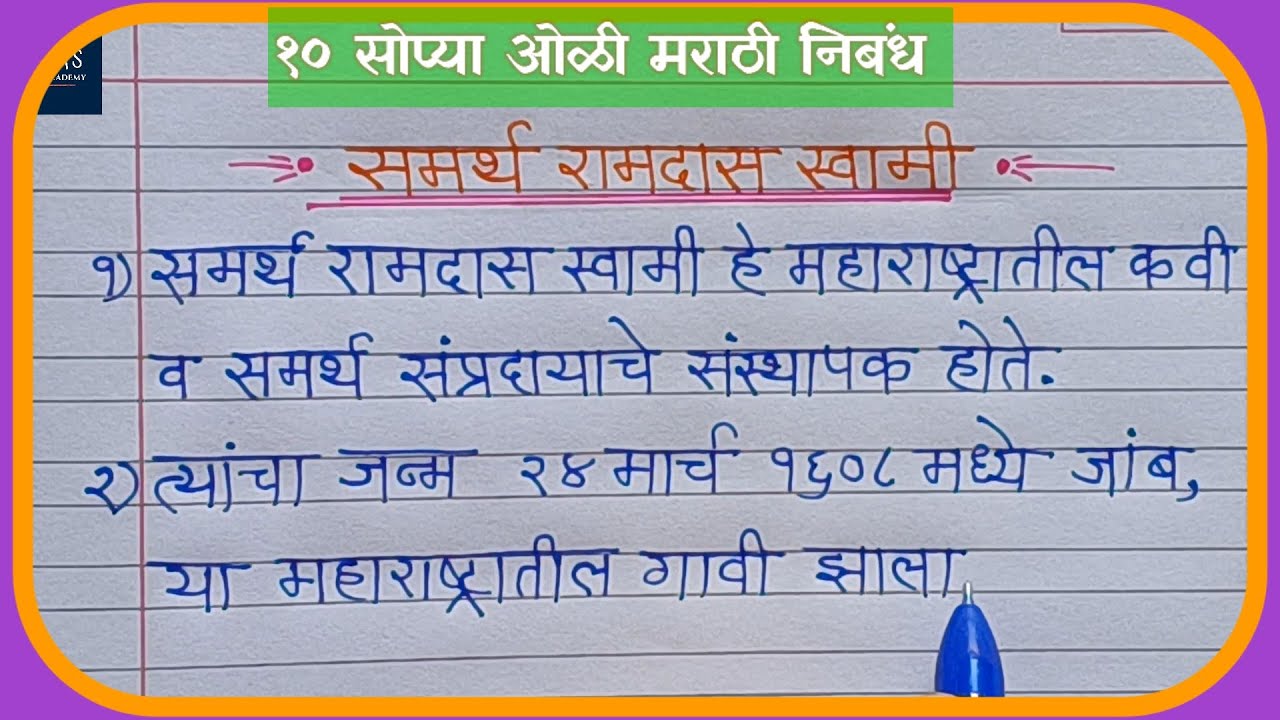 १० सोप्या ओळी मराठी निबंध
ACADEMY
समर्थ रामदास स्वामी
१) समर्थ रामदास स्वामी हे महाराष्ट्रातील कवी
व समर्थ संप्रदायाचे संस्थापक होते.
२) त्यांचा जन्म २४ मार्च १६०८ मध्ये जांब,
या महाराष्ट्रातील गावी झाला